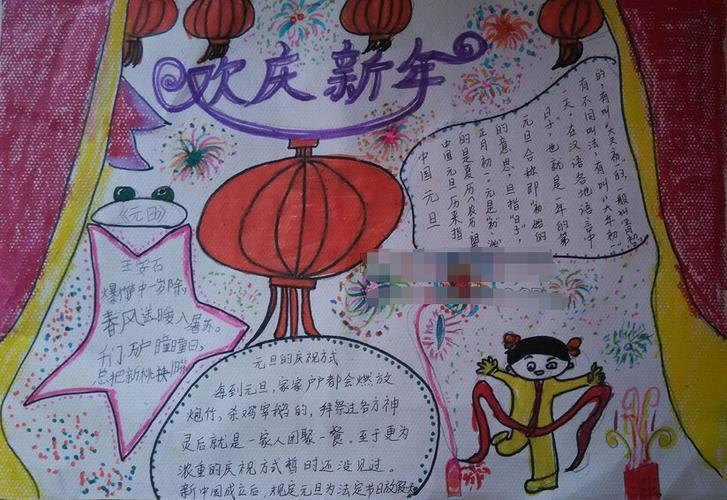 欢庆新年
《元日》
王安石
爆竹中一岁除,
春风送暖入屠苏。
千门万户瞳瞳日,
总把新桃换旧符
中国元旦
中国元旦历来指
的是夏历(农历、阴
正月初一元是"初""始"
的意思,旦指"日子",
元旦合称即"初始的
日子",也就是一年的第
一天。在汉语各地语言中
有不同叫法,有叫"大年初一"
的,有叫"大天初一"的,一般叫
元旦的庆祝方式
每到元旦,家家户户都会燃放
炮竹,杀鸡宰鹅的,拜祭过各方神
灵后就是一家人团聚一餐。至于更为
浓重的庆祝方式暂时还没见过。
新中国成立后,规定元旦为法定节日放假